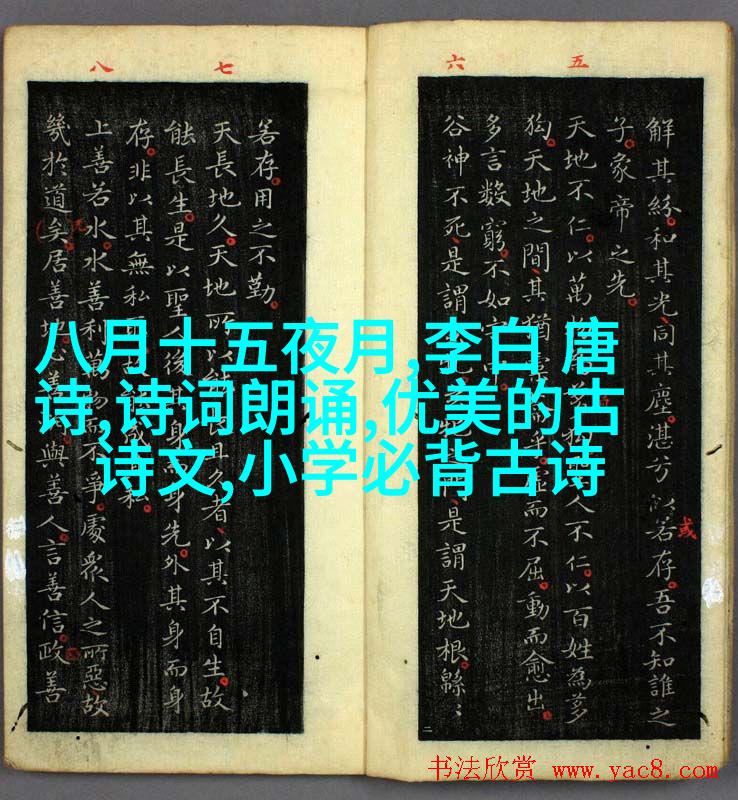 八月十五夜月,李白 唐
诗,诗词朗诵,优美的古
诗文,小学必背古诗
五
六
解其紛和其光同其塵湛兮以若存吾不知誰之
或
子象帝之先
天地不仁以萬人不仁以百姓為芻
狗天地之間其猶乎虛而不屈動而愈出
多言數窮不如
谷神不死是謂是謂天地根緜〻
七
八
若存用之不勤
天長地久天地所以能且久者以其不自生故
能長生是以聖人後其身而身先外其身而身
存非以其無私成私
上善若水水善利萬而不爭處衆人之所惡故
幾於道矣居善地心善與善人言善信政善
书法欣赏 www.yac8.com